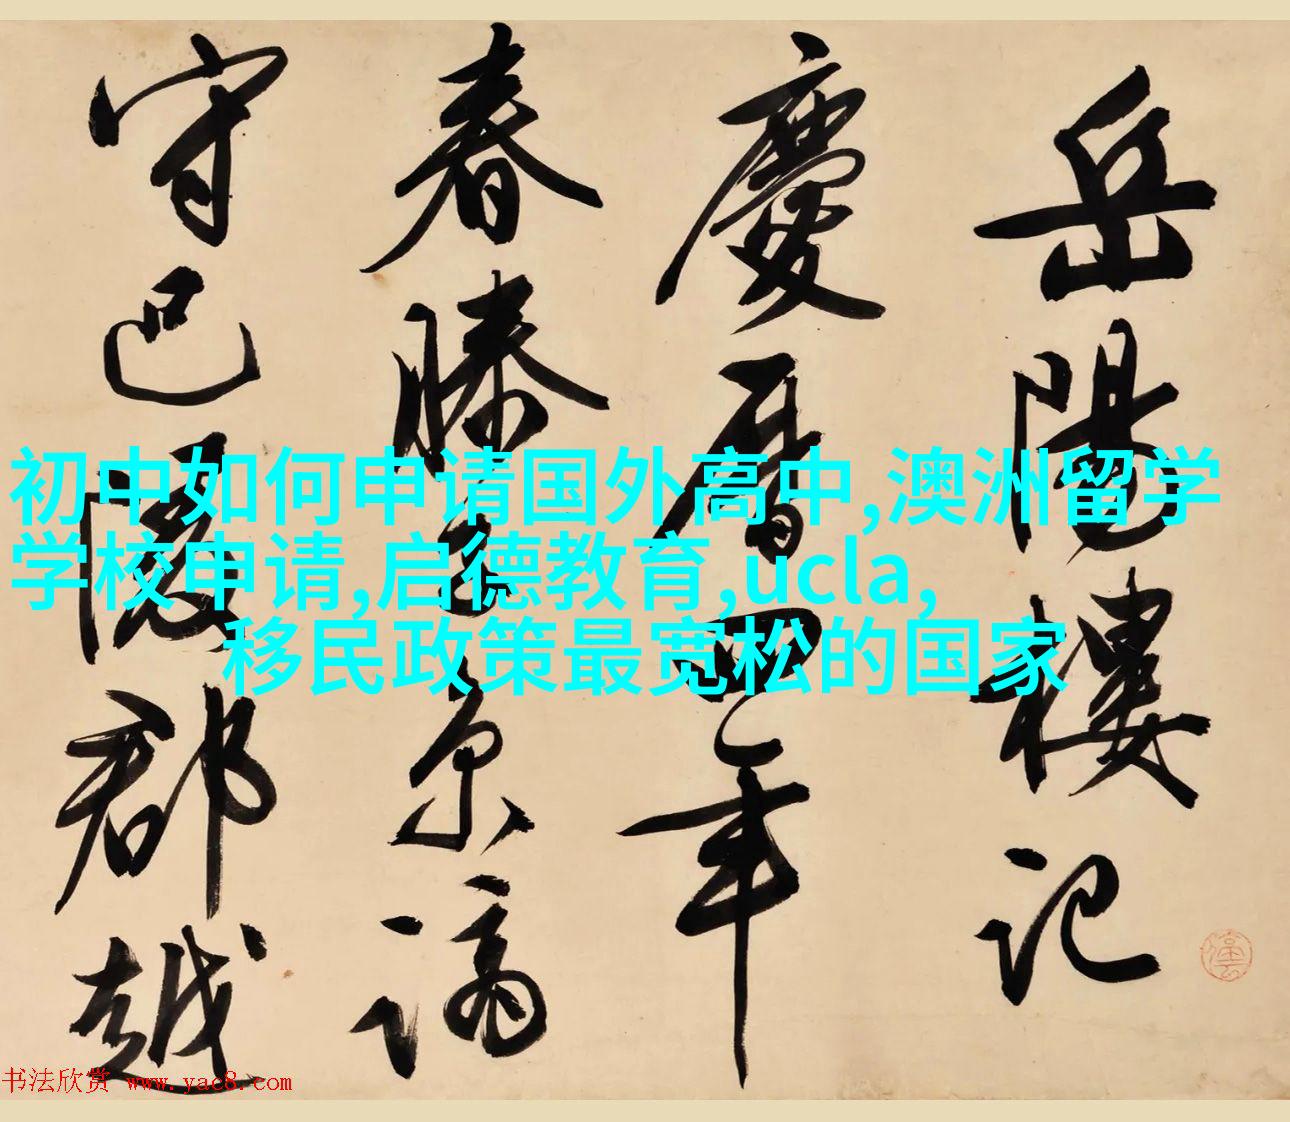 岳陽樓記
慶曆四年
春滕子京謫
守巴陵郡越
初中如何申请国外高中,澳洲留学
学校申请,启德教育,ucla,
移民政策最宽松的国家
书法欣赏 www.yac8.com